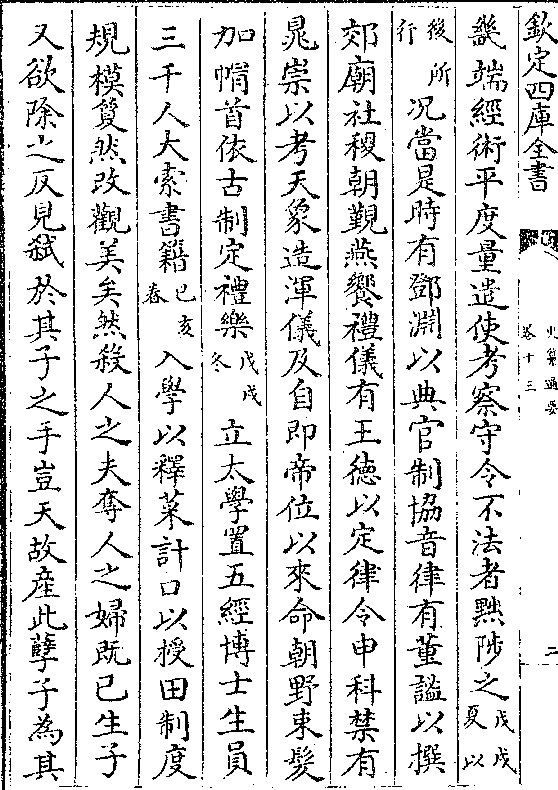 欽定四庫全書
史纂通要
卷十三
二
畿端經術平度量遣使考察守令不法者黜陟之戊戌夏以
後所行况當是時有鄧淵以典官制協音律有董謐以撰
郊廟社稷朝覲燕饗禮儀有王德以定律令申科禁有
晁崇以考天象造渾儀及自即帝位以來命朝野束髮
加帽首依古制定禮樂戊戌冬立太學置五經博士生員
三千人大索書籍己亥春入學以釋菜計口以授田制度
規模夐然改觀美矣然殺人之夫奪人之婦既已生子
又欲除之反見弒於其子之手豈天故産此孽子為其